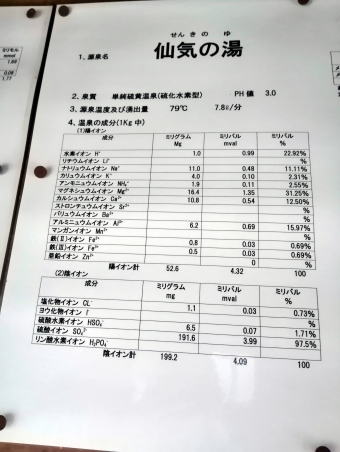 ミリモル
1.69
0.08
1.77
せんきの ゆ
1、源泉名 仙気の湯
2、泉質 単純硫黄温泉(硫化水素型) PH値 3.0
3、源泉温度及び湧出量 79℃ 7.8ℓ/分
4、温泉の成分(1Kg 中)
(1)陽イオン
成分 ミリグラム Mg ミリバル mval ミリバル %
水素イオン H⁺ 1.0 0.99 22.92%
リチウムイオン Li⁺ %
ナトリュウムイオン Na⁺ 11.0 0.48 11.11%
カリュウムイオン K⁺ 4.0 0.10 2.31%
アンモニュウムイオン NH₄⁺ 1.9 0.11 2.55%
マグネシュウムイオン Mg²⁺ 16.4 1.35 31.25%
カルシュウムイオン Ca²⁺ 10.8 0.54 12.50%
ストロンチュウムイオン Sr²⁺ %
バリュウムイオン Ba²⁺ %
アルミニュウムイオン Al³⁺ 6.2 0.69 15.97%
マンガンイオン Mn²⁺ %
鉄(Ⅱ)イオン Fe²⁺ 0.8 0.03 0.69%
鉄(Ⅲ)イオン Fe³⁺ 0.5 0.03 0.69%
亜鉛イオン Zn²⁺ 0 %
陽イオン計 52.6 4.32 100
(2)陰イオン
成分 ミリグラム mg ミリバル mval ミリバル %
塩化物イオン CL⁻ 1.1 0.03 0.73%
ヨウ化物イオン I⁻ %
硫酸水素イオン HSO₄⁻ 6.5 0.07 1.71%
硫酸イオン SO₄²⁻ 191.6 3.99 97.5%
リン酸水素イオン H₂PO₄⁻
陰イオン計 199.2 4.09 100